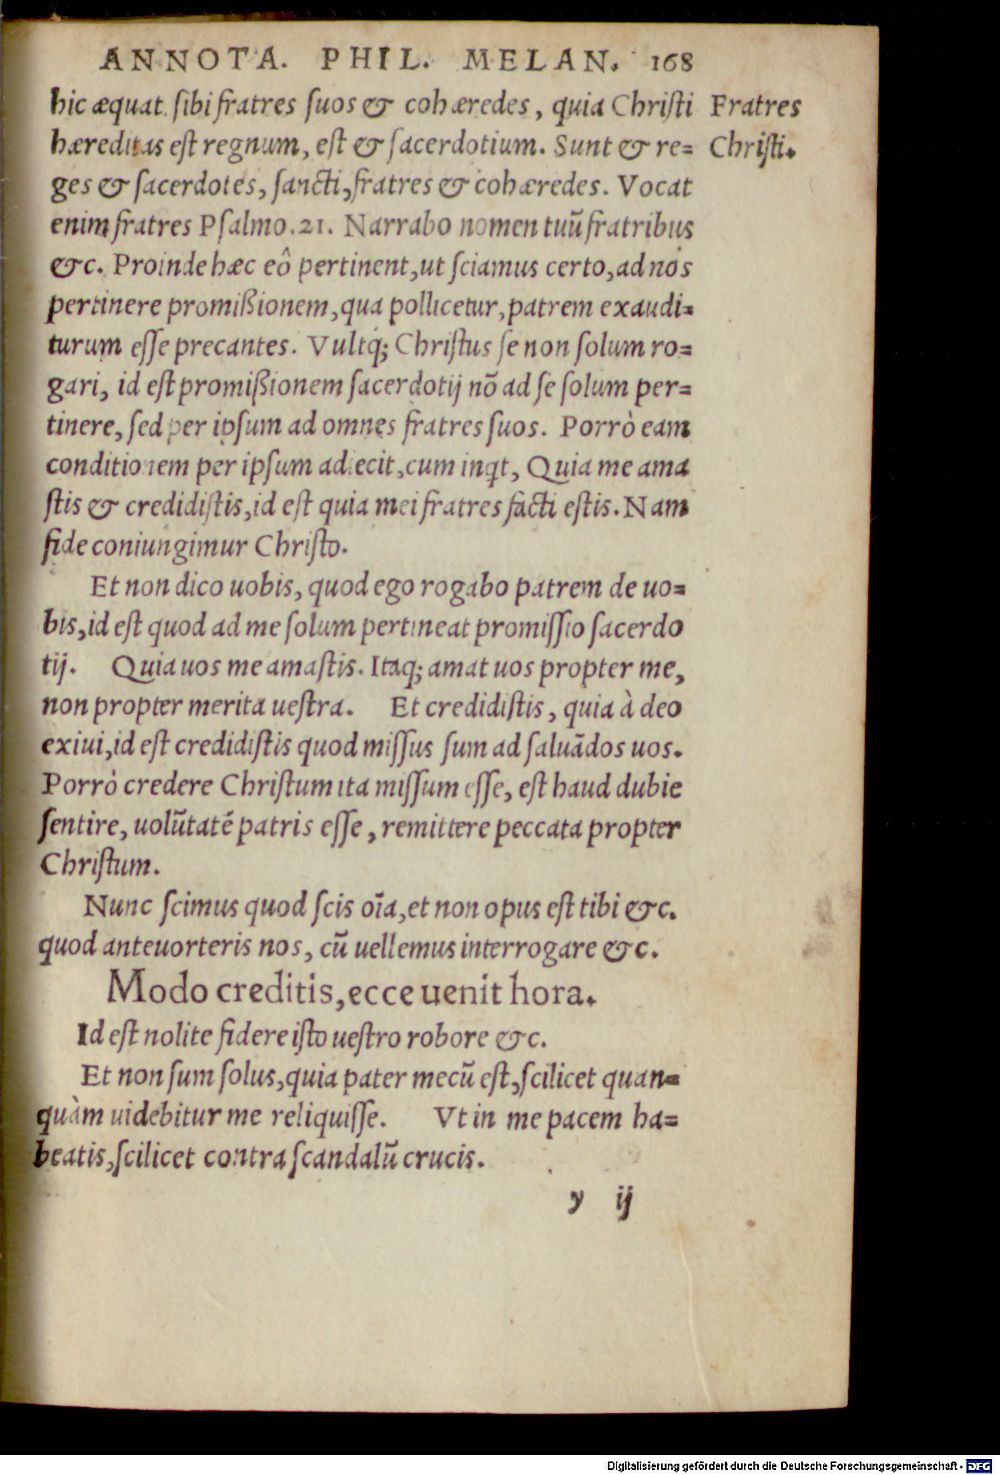 ANNOTA. PHIL. MELAN. 168
hic æquat sibi fratres suos & cohæredes, quia Christi
Fratres
hæreditas est regnum, est & sacerdotium. Sunt & re=
Christi.
ges & sacerdotes, sancti, fratres & cohæredes. Vocat
enim fratres Psalmo. 21. Narrabo nomen tuũ fratribus
&c. Proinde hæc eô pertinent, ut sciamus certo, ad nos
pertinere promißionem, qua pollicetur, patrem exaudi=
turum esse precantes. Vultq; Christus se non solum ro=
gari, id est promißionem sacerdotij nõ ad se solum per=
tinere, sed per ipsum ad omnes fratres suos. Porrò eam
conditionem per ipsum adiecit, cum inqt, Quia me ama
stis & credidistis, id est quia mei fratres facti estis. Nam
fide coniungimur Christo.
Et non dico uobis, quod ego rogabo patrem de uo=
bis, id est quod ad me solum pertineat promissio sacerdo
tij. Quia uos me amastis. Itaq; amat uos propter me,
non propter merita uestra. Et credidistis, quia à deo
exiui, id est credidistis quod missus sum ad saluãdos uos.
Porrò credere Christum ita missum esse, est haud dubie
sentire, uolũtatẽ patris esse, remittere peccata propter
Christum.
Nunc scimus quod scis oĩa, et non opus est tibi &c.
quod anteuorteris nos, cũ uellemus interrogare &c.
Modo creditis, ecce uenit hora.
Id est nolite fidere isto uestro robore &c.
Et non sum solus, quia pater mecũ est, scilicet quan=
quàm uidebitur me reliquisse. Vt in me pacem ha=
beatis, scilicet contra scandalũ crucis.
y ij
Digitalisierung gefördert durch die Deutsche Forschungsgemeinschaft - DFG